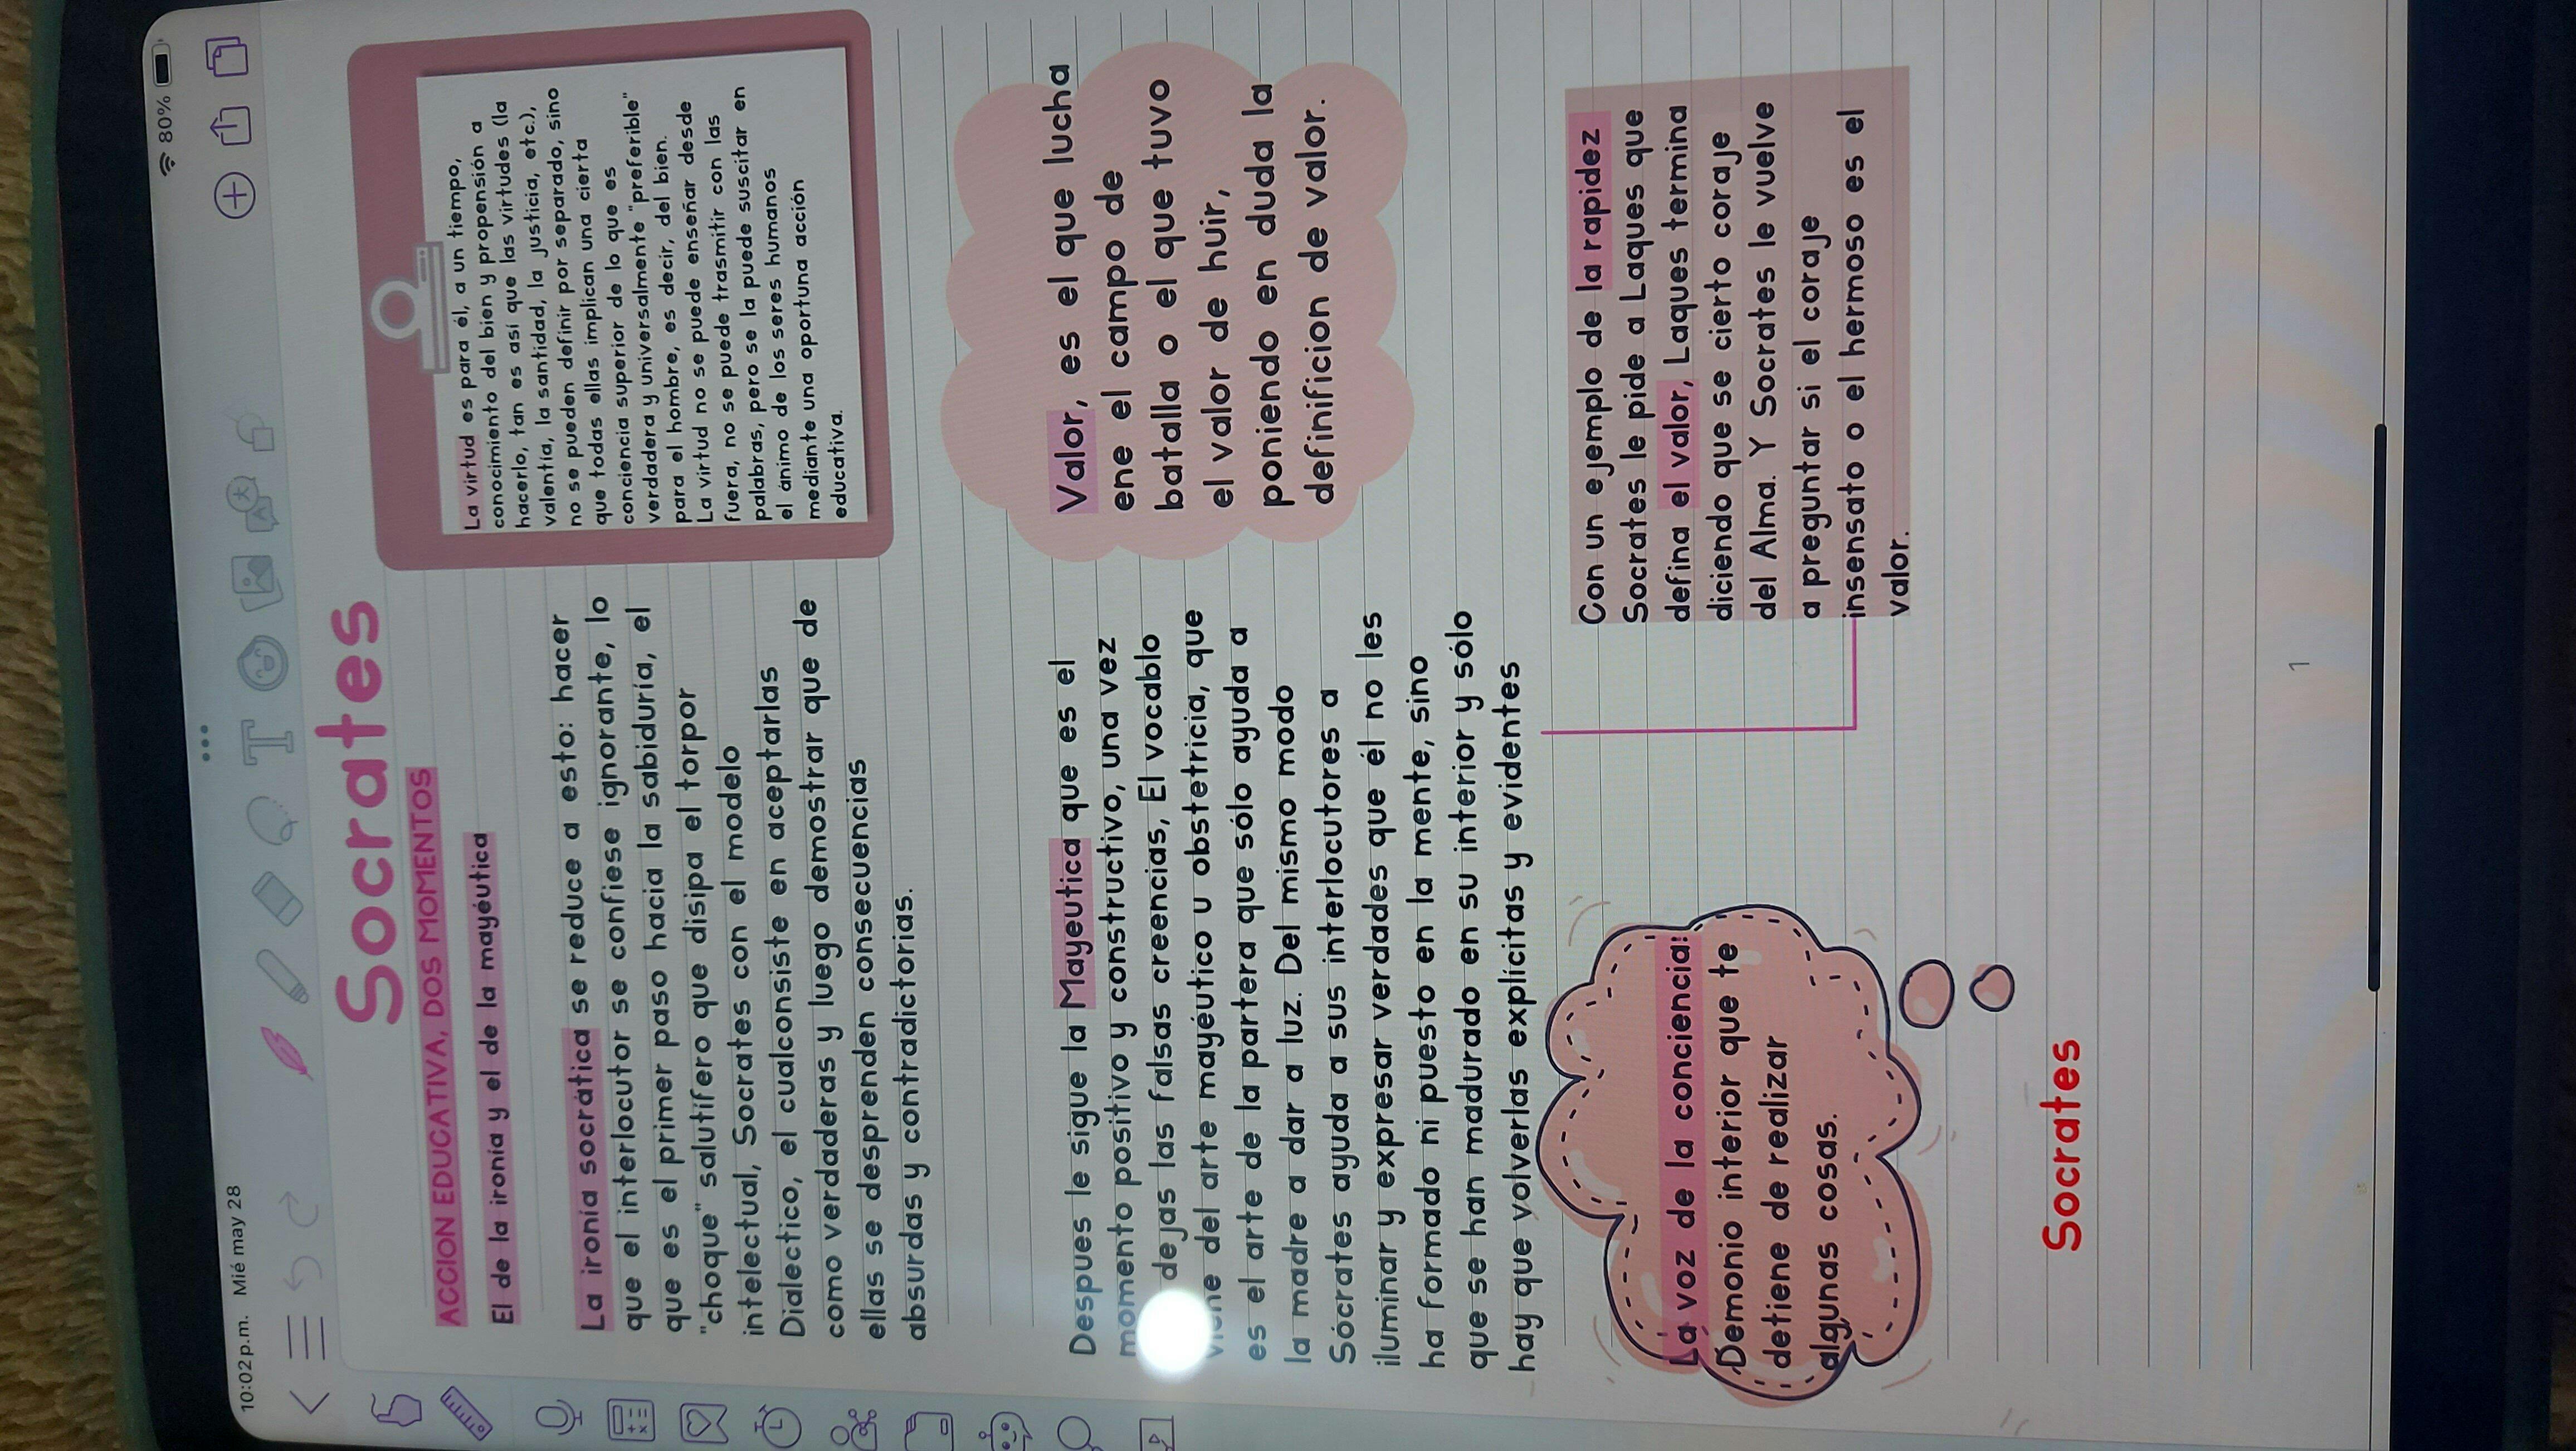 10:02 p.m. Mié may 28
80%
Socrates
ACCION EDUCATIVA, DOS MOMENTOS
El de la ironía y el de la mayéutica
La ironía socrática se reduce a esto: hacer
que el interlocutor se confiese ignorante, lo
que es el primer paso hacia la sabiduría, el
"choque" salutífero que disipa el torpor
intelectual, Socrates con el modelo
Dialectico, el cualconsiste en aceptarlas
como verdaderas y luego demostrar que de
ellas se desprenden consecuencias
absurdas y contradictorias.
La virtud es para él, a un tiempo,
conocimiento del bien y propensión a
hacerlo, tan es así que las virtudes (la
valentía, la santidad, la justicia, etc.),
no se pueden definir por separado, sino
que todas ellas implican una cierta
conciencia superior de lo que es
verdadera y universalmente "preferible"
para el hombre, es decir, del bien.
La virtud no se puede enseñar desde
fuera, no se puede trasmitir con las
palabras, pero se la puede suscitar en
el ánimo de los seres humanos
mediante una oportuna acción
educativa.
Despues le sigue la Mayeutica que es el
momento positivo y constructivo, una vez
dejas las falsas creencias, El vocablo
viene del arte mayéutico u obstetricia, que
es el arte de la partera que sólo ayuda a
la madre a dar a luz. Del mismo modo
Sócrates ayuda a sus interlocutores a
iluminar y expresar verdades que él no les
ha formado ni puesto en la mente, sino
que se han madurado en su interior y sólo
hay que volverlas explícitas y evidentes
Valor, es el que lucha
ene el campo de
batalla o el que tuvo
el valor de huir,
poniendo en duda la
definificion de valor.
La voz de la conciencia:
Demonio interior que te
detiene de realizar
algunas cosas.
Con un ejemplo de la rapidez
Socrates le pide a Laques que
defina el valor, Laques termina
diciendo que se cierto coraje
del Alma. Y Socrates le vuelve
a preguntar si el coraje
insensato o el hermoso es el
valor.
Socrates
1